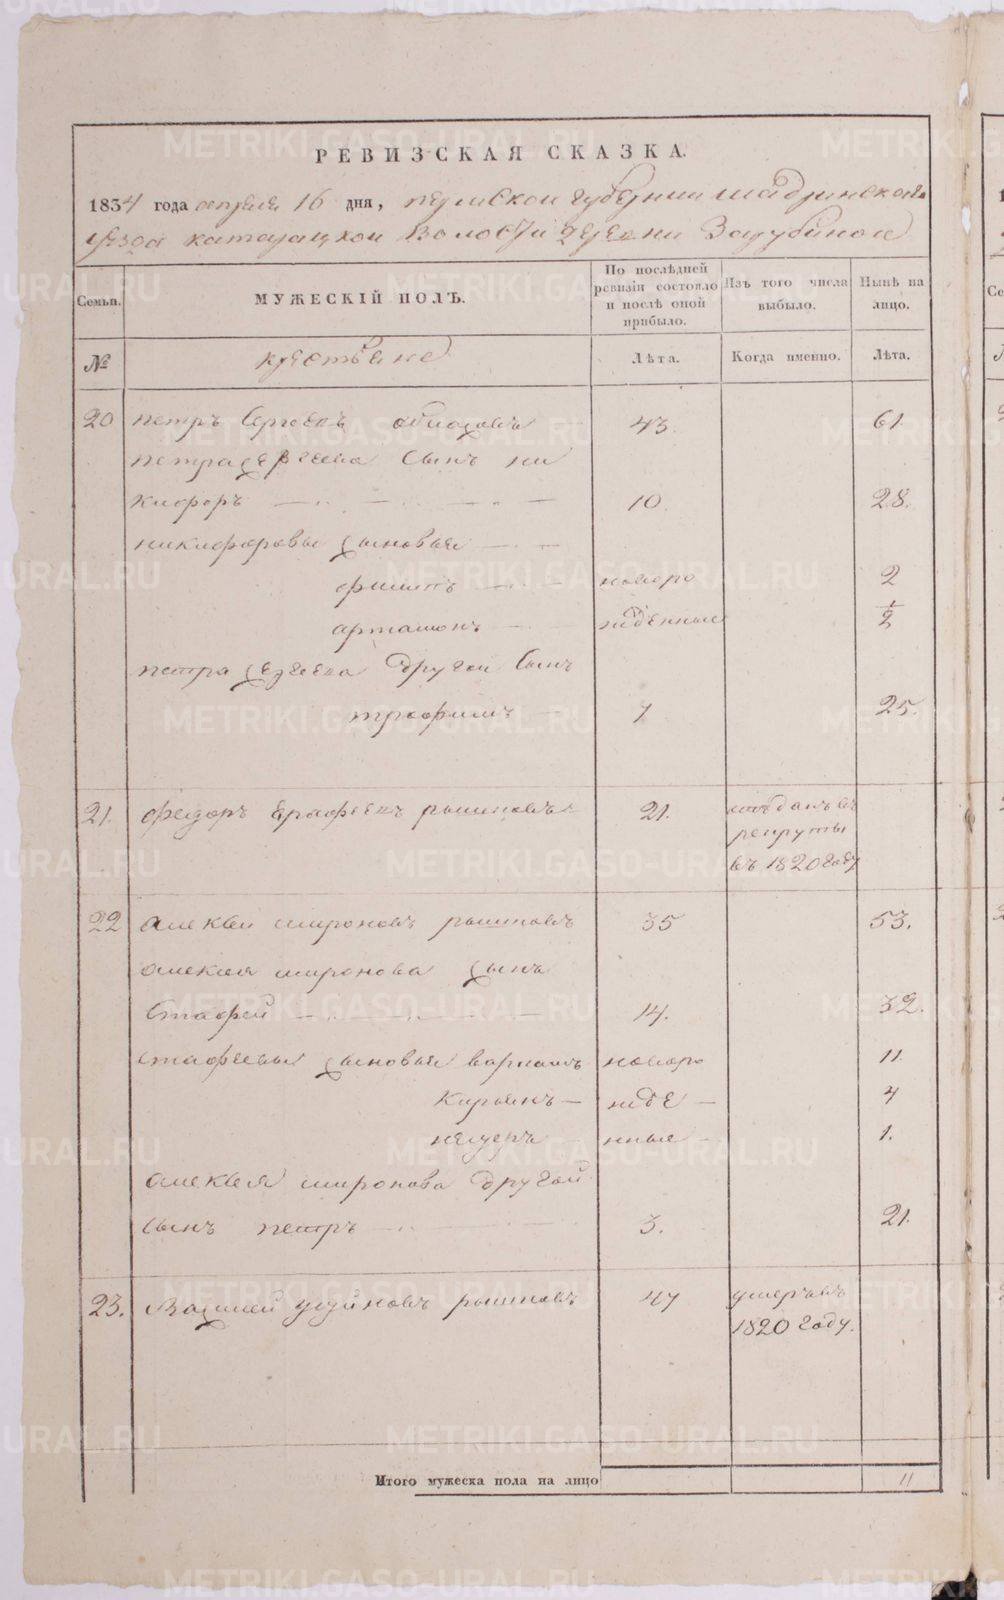 РЕВИЗСКАЯ СКАЗКА.
1834 года апреля 16 дня, пермской губернии шадринскаго
уезда катайцкой волости деревни Зырубиной
Семьи.
МУЖЕСКІЙ ПОЛЪ.
По послѣдней ревизіи состояло и послѣ оной прибыло.
Изъ того числа выбыло.
Нынѣ на лицо.
№ крестьяне Лѣта. Когда именно. Лѣта.
20 петръ Сергеевъ 43. 61.
петра сергеева сынъ ни
кифоръ 10. 28.
никифоровы сыновья
филипъ новоро 2
артамонъ жденные 1/2
петра сергеева другой сынъ
трофимъ 7 25.
21. федоръ Ерофеевъ 21. отъданъ въ
рекруты
въ 1820 году
22 алексей мироновъ 35 53.
алексея миронова сынъ
Етафей 14. 32.
етафеевы сыновья варламъ новоро 11.
Кирьянъ жде 4
несторъ нные 1.
алексея миронова другой
сынъ петръ 3. 21.
23. Василей устиновъ 47 умеръ въ
1820 году.
Итого мужеска пола на лицо 11
METRIKI.GASO-URAL.RU